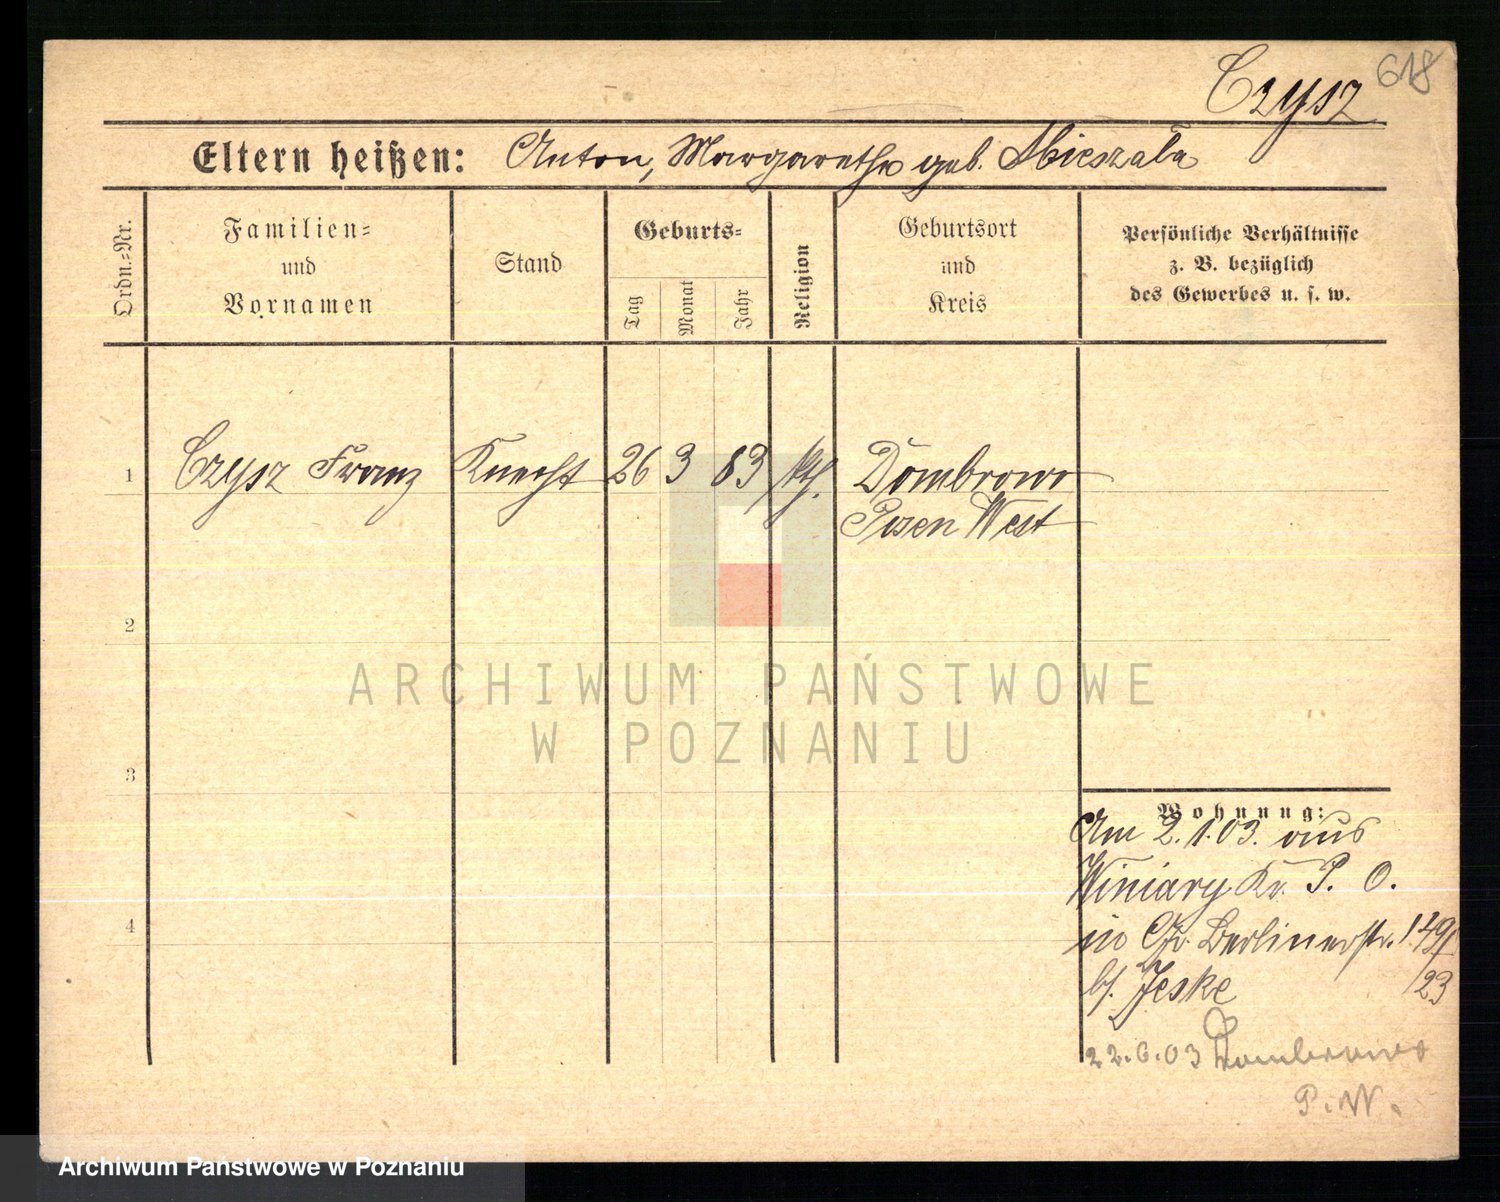 618
Czysz
Eltern heißen: Anton, Margarethe geb.
Ordn.=Nr.
Familien=
und
Vornamen
Stand
Geburts=
Tag
Monat
Jahr
Religion
Geburtsort
und
Kreis
Persönliche Verhältnisse
z. B. bezüglich
des Gewerbes u. s. w.
1 Czysz Franz Knecht 26 3 83 kth. Dombrowo
Posen West
2
ARCHIWUM PAŃSTWOWE
W POZNANIU
3
Wohnung:
Am 2.1.03. aus
Winiary Kr. P. O.
4
in Gr. Berlinerstr.
b/. Jeske 23
22.6.03 Dombrowo
P. W.
Archiwum Państwowe w Poznaniu